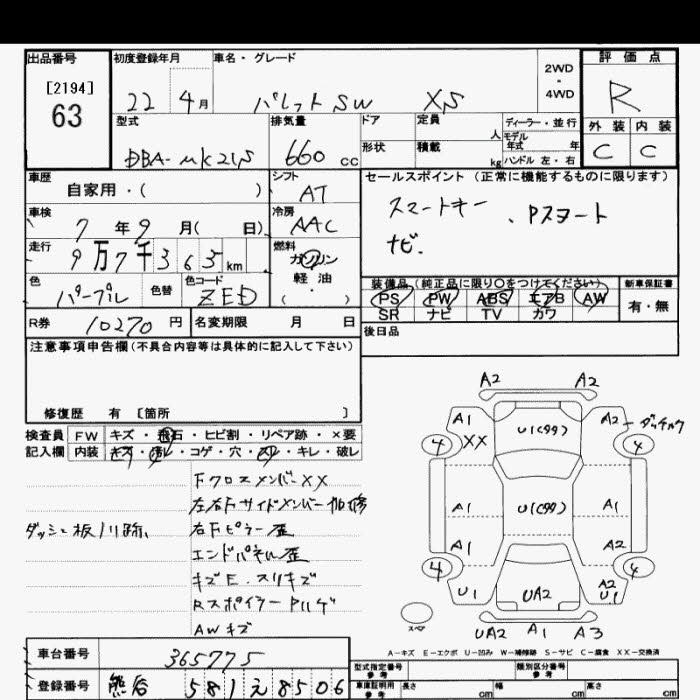 出品番号
[2194]
63
初度登録年月
22 4月
車名・グレード
パレットSW XS
2WD
・
4WD
評価点
R
外装 内装
C C
型式
DBA-MK21S
排気量
660 cc
ドア
形状
定員 人
積載 kg
ディーラー・並行
モデル年式 年
ハンドル 左・右
車歴
自家用・( )
シフト
AT
セールスポイント (正常に機能するものに限ります)
スマートキー、Pスタート
ナビ.
車検
7年9月( 日)
冷房
AAC
走行
9万7千365km
燃料
ガソリン
軽油
( ・ )
色
パープル
色替
色コード
ZED
装備品(純正品に限り○をつけてください)
PS PW ABS エアB AW
SR ナビ TV カワ
新車保証書
有・無
R券 10270円
名変期限 月 日
後日品
注意事項申告欄(不具合内容等は具体的に記入して下さい)
修復歴 有 [箇所 ]
検査員
記入欄
FW キズ・飛石・ヒビ割・リペア跡・×要
内装 キズ・汚レ・コゲ・穴・スレ・キレ・破レ
FクロスメンバーXX
左右Fサイドメンバー 修
右Fピラー歪
エンドパネル歪
キズE.スリキズ
RスポイラーPハゲ
AWキズ
A2 A2
A1 XX
U1(99)
A2 ダッチャク
4 4
A1
U1(99)
A1
A1
A2
4 4
U1
UA2
A2
U1
スペア
UA2 A1 A3
A-キズ E-エクボ U-凹み W-補修跡 S-サビ C-腐食 XX-交換済
車台番号
365775
登録番号
581え8506
型式指定番号
参考
類別区分番号
参考
車庫証明用
参考
長さ cm
幅 cm
高さ cm